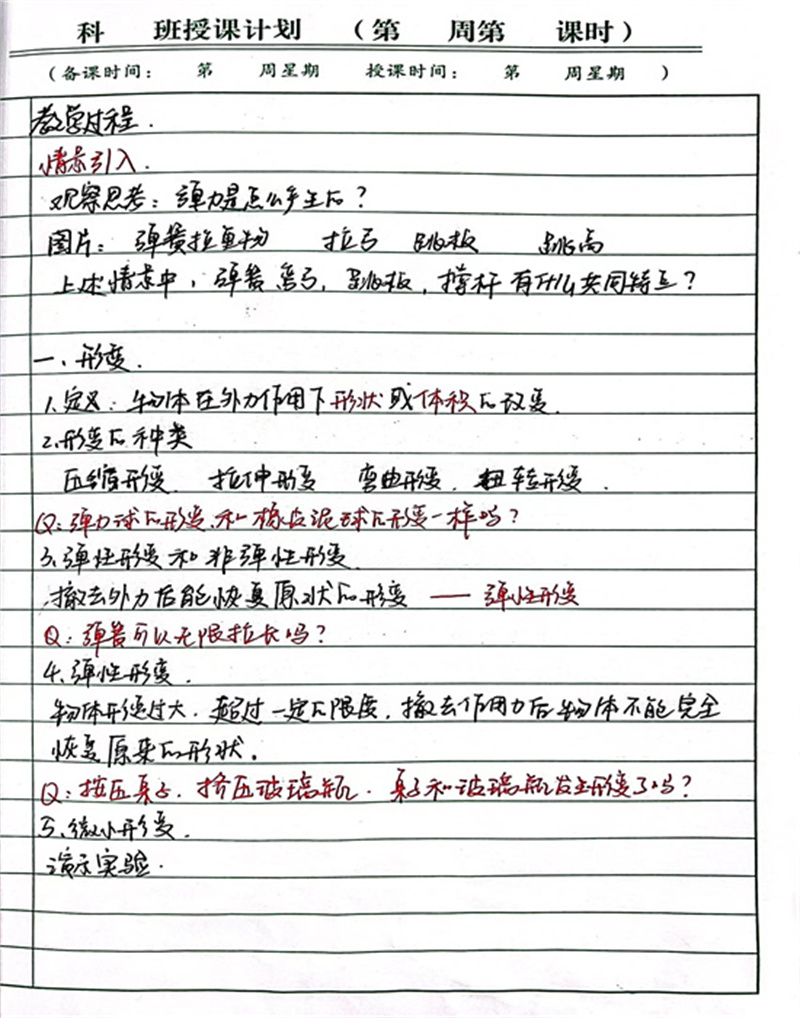 科 班授课计划 （第 周第 课时）
（备课时间： 第 周星期 授课时间： 第 周星期 ）
教学过程.
情景引入.
观察思考：弹力是怎么产生的？
图片：弹簧拉重物 拉弓 跳板 跳高
上述情景中，弹簧 弯弓，跳板，撑杆 有什么共同特点？
一、形变.
1.定义：物体在外力作用下形状或体积的改变.
2.形变的种类
压缩形变. 拉伸形变 弯曲形变. 扭转形变.
Q：弹力球的形变和橡皮泥球的形变一样吗？
3.弹性形变和非弹性形变.
撤去外力后能恢复原状的形变 —— 弹性形变
Q：弹簧可以无限拉长吗？
4.弹性形变.
物体形变过大.超过一定的限度，撤去作用力后物体不能完全
恢复原来的形状。
Q：按压桌子.挤压玻璃瓶.桌子和玻璃瓶发生形变了吗？
5.微小形变.
演示实验.